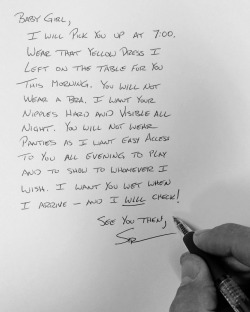 Baby Girl,
I will pick you up at 7:00.
Wear that yellow dress I
left on the table for you
this morning. You will not
wear a bra. I want your
nipples hard and visible all
night. You will not wear
panties as I want easy access
to you all evening to play
and to show to whomever I
wish. I want you wet when
I arrive – and I will check!
See you then,
Sir